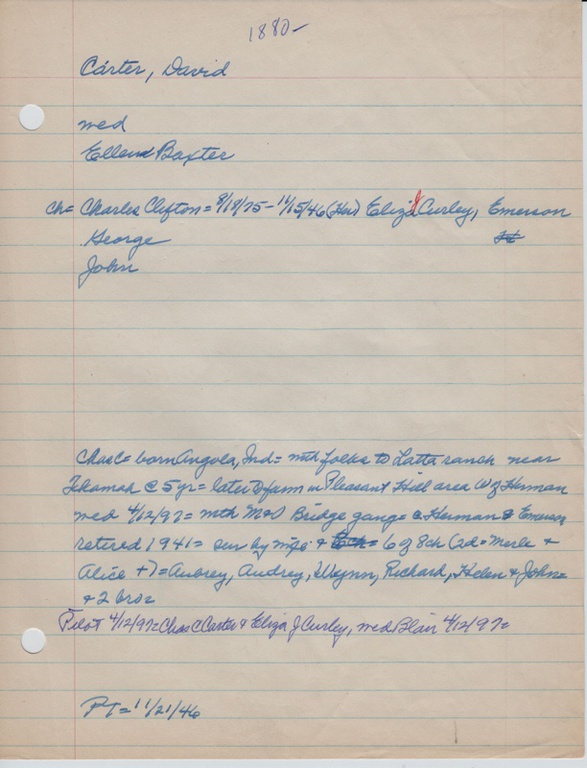 1880-
Carter, David
wed
Ellen Baxter
ch= Charles Clifton = 8/19/75 - 11/15/46 (Her) Eliza J Curley, Emerson
George
John
Chas C = born Angola, Ind = mth folks to Latta ranch near
Tekamah @ 5 yr = later to farm in Pleasant Hill area W of Herman
wed 4/12/97 = mth M&O Bridge gang = @ Herman & Emerson
retired 1941 = sur by wife & = 6 of 8 ch (2d = Merle &
Alice +) = Aubrey, Audrey, Wynn, Richard, Helen & John =
+ 2 bros
Pilot 4/12/97 = Chas C Carter & Eliza J Curley, wed Blair 4/12/97 =
PT = 11/21/46